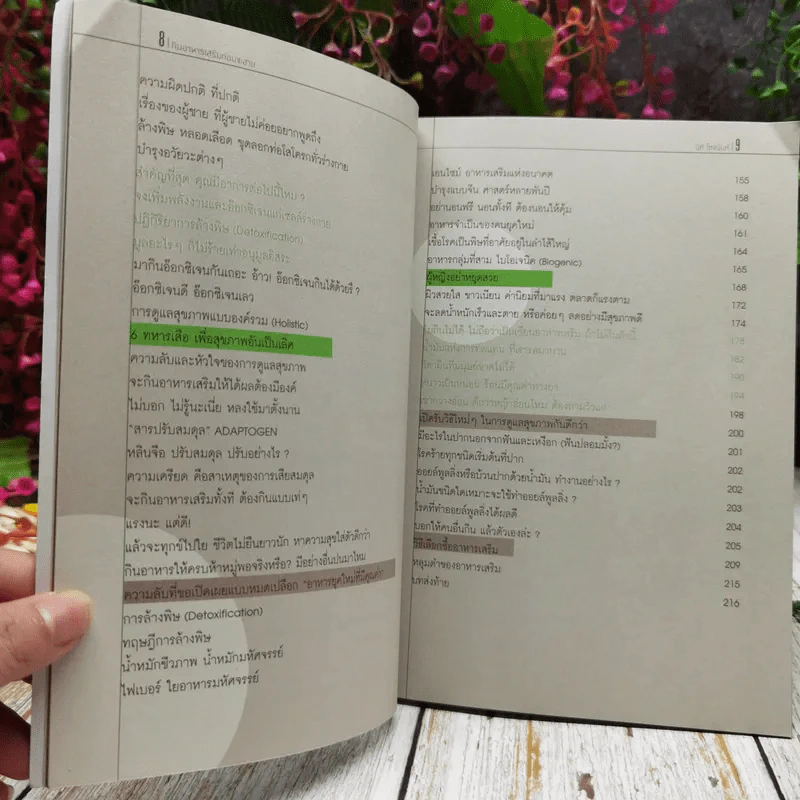 8 | กินอาหารเสริมก่อนจะสาย
ความผิดปกติ ที่ปกติ
เรื่องของผู้ชาย ที่ผู้ชายไม่ค่อยอยากพูดถึง
ล้างพิษ หลอดเลือด ขุดลอกท่อโสโครกทั่วร่างกาย
บำรุงอวัยวะต่างๆ
สำคัญที่สุด คุณมีอาการต่อไปนี้ไหม ?
จงเพิ่มพลังงานและอ๊อกซิเจนแก่เซลล์ร่างกาย
ปฏิกิริยาการล้างพิษ (Detoxification)
มูลอะไรๆ ก็ไม่ร้ายเท่าอนุมูลอิสระ
มากินอ๊อกซิเจนกันเถอะ อ้าว! อ๊อกซิเจนกินได้ด้วยรึ ?
อ๊อกซิเจนดี อ๊อกซิเจนเลว
การดูแลสุขภาพแบบองค์รวม (Holistic)
6 ทหารเสือ เพื่อสุขภาพอันเป็นเลิศ
ความลับและหัวใจของการดูแลสุขภาพ
จะกินอาหารเสริมให้ได้ผลต้องมีองค์
ไม่บอก ไม่รู้นะเนี่ย หลงใช้มาตั้งนาน
"สารปรับสมดุล" ADAPTOGEN
หลินจือ ปรับสมดุล ปรับอย่างไร ?
ความเครียด คือสาเหตุของการเสียสมดุล
จะกินอาหารเสริมทั้งที ต้องกินแบบเท่ๆ
แรงนะ แต่ดี!
แล้วจะทุกข์ไปใย ชีวิตไม่ยืนยาวนัก หาความสุขใส่ตัวดีกว่า
กินอาหารให้ครบห้าหมู่พอจริงหรือ? มีอย่างอื่นปนมาไหม
ความลับที่ขอเปิดเผยแบบหมดเปลือก "อาหารยุคใหม่ที่มีคุณค่า"
การล้างพิษ (Detoxification)
ทฤษฎีการล้างพิษ
น้ำหมักชีวภาพ น้ำหมักมหัศจรรย์
ไฟเบอร์ ใยอาหารมหัศจรรย์
| 9
เอนไซม์ อาหารเสริมแห่งอนาคต 155
บำรุงแบบจีน ศาสตร์หลายพันปี 158
อย่านอนฟรี นอนทั้งที ต้องนอนให้คุ้ม 160
อาหารจำเป็นของคนยุคใหม่ 161
เชื้อโรคเป็นพิษที่อาศัยอยู่ในลำไส้ใหญ่ 164
อาหารกลุ่มที่สาม ไบโอเจนิค (Biogenic) 165
ผู้หญิงอย่าหยุดสวย 168
ผิวสวยใส ขาวเนียน ค่านิยมที่มาแรง ตลาดก็แรงตาม 172
จะลดน้ำหนักเร็วและตาย หรือค่อยๆ ลดอย่างมีสุขภาพดี 174
178
182
190
194
เปิดรับวิธีใหม่ๆ ในการดูแลสุขภาพกันดีกว่า 198
มีอะไรในปากนอกจากฟันและเหงือก (ฟันปลอมมั้ง?) 200
โรคร้ายทุกชนิดเริ่มต้นที่ปาก 201
ออยล์พูลลิ่งหรือบ้วนปากด้วยน้ำมัน ทำงานอย่างไร ? 202
น้ำมันชนิดใดเหมาะจะใช้ทำออยล์พูลลิ่ง ? 202
โรคที่ทำออยล์พูลลิ่งได้ผลดี 203
บอกให้คนอื่นกิน แล้วตัวเองล่ะ ? 204
วิธีเลือกซื้ออาหารเสริม 205
หลุมดำของอาหารเสริม 209
บทส่งท้าย 215
216